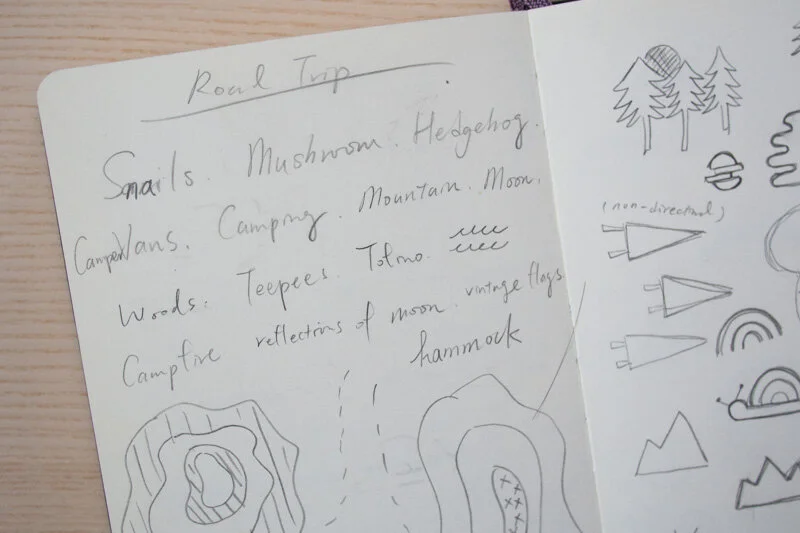 Road Trip
Snails. Mushroom. Hedgehog.
CamperVans. Camping. Mountain. Moon.
Woods. Teepees. Totmo.
Campfire reflections of moon. vintage flags
hammock
(non-directional)